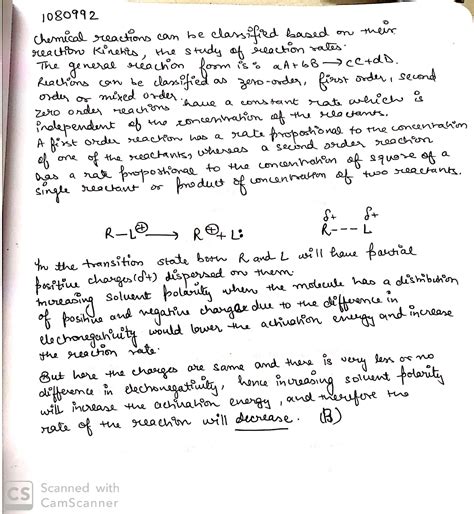 1080992
Chemical reactions can be classified based on their
reaction kinetics, the study of reaction rates.
The general reaction form is: aA+bB → cC+dD.
Reactions can be classified as zero-order, first order, second
order or mixed order.
Zero order reactions have a constant rate which is
independent of the concentration of the reactants.
A first order reaction has a rate proportional to the concentration
of one of the reactants, whereas a second order reaction
has a rate proportional to the concentration of square of a
single reactant or product of concentration of two reactants.
δ+ δ+
R—L⊕ → R⊕ + L: R---L
In the transition state both R and L will have partial
positive charges (δ+) dispersed on them.
Increasing solvent polarity when the molecule has a distribution
of positive and negative charge due to the difference in
electronegativity would lower the activation energy and increase
the reaction rate.
But here the charges are same and there is very less or no
difference in electronegativity, hence increasing solvent polarity
will increase the activation energy, and therefore the
rate of the reaction will decrease. (B)
CS Scanned with
CamScanner